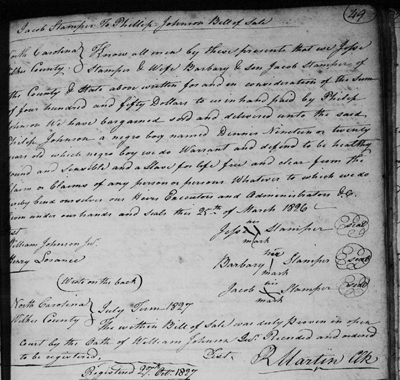 Jacob Stamper To Phillip Johnson Bill of Sale
419
North Carolina
Wilkes County
Know all men by these presents that we Jesse
Stamper & Wife Barbary & son Jacob Stampers of
the County & State above written for and in consideration of the Sum
of four hundred and fifty Dollars to us in hand paid by Philip
Johnson We have bargained sold and delivered unto the said
Philip Johnson a negro boy named Dennis Nineteen or twenty
years old which negro boy we do Warrant and defend to be healthy
sound and Sensible and a Slave for life free and clear from the
Claim or Claims of any person or persons Whatever to which we do
hereby bind ourselves our Heirs Executors and Administrators &C.
Given under our hands and seals this 25th of March 1826
Test
William Johnson Jur
Lorance
Jesse his mark Stamper seal
Barbary her mark Stamper seal
Jacob his mark Stamper seal
(Wrote on the back)
North Carolina
Wilkes County
July Term 1827
The written Bill of Sale was duly Proven in open
court by the Oath of William Johnson Jur. Recorded and ordered
to be registered.
Test R Martin Clk
Registered 27th Oct. 1827